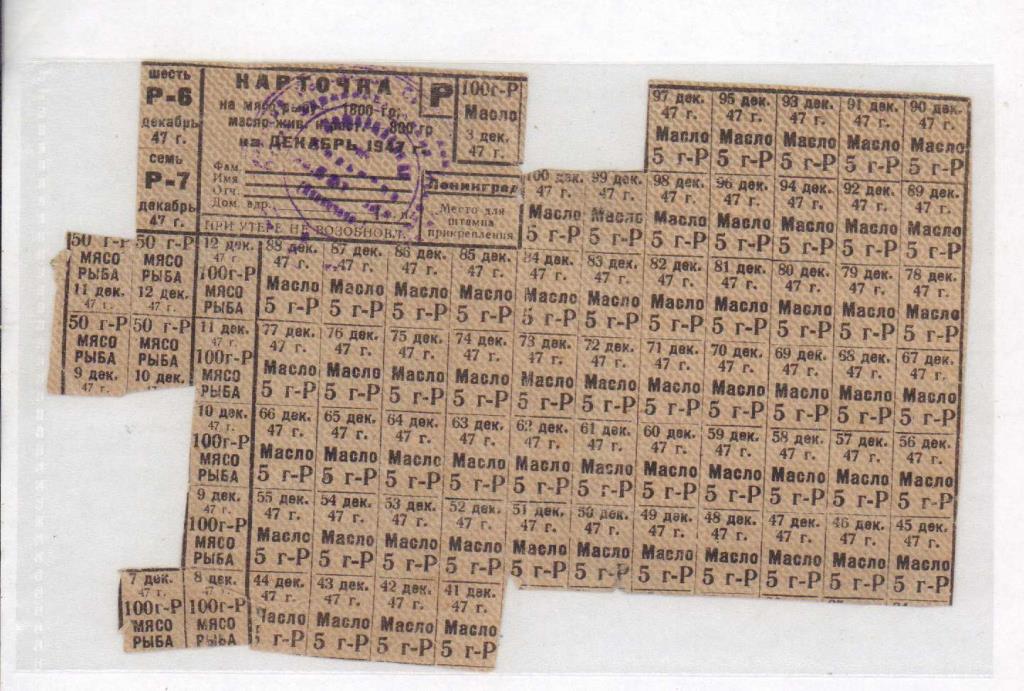 шесть
Р-6
декабрь
47 г.
семь
Р-7
декабрь
47 г.
КАРТОЧКА
на мясо-рыбу 1800 гр.
масло-жив. 800 гр
на ДЕКАБРЬ 1947 г.
Фам.
Имя
Отч.
Дом. адр.
ПРИ УТЕРЕ НЕ ВОЗОБНОВЛ.
Р
Ленинград
Место для
штампа
прикрепления
100г-Р
Масло
3 дек.
47 г.
97 дек. 95 дек. 93 дек. 91 дек. 90 дек.
47 г. 47 г. 47 г. 47 г. 47 г.
Масло Масло Масло Масло Масло
5 г-Р 5 г-Р 5 г-Р 5 г-Р 5 г-Р
100 дек. 99 дек. 98 дек. 96 дек. 94 дек. 92 дек. 89 дек.
47 г. 47 г. 47 г. 47 г. 47 г. 47 г. 47 г.
Масло Масло Масло Масло Масло Масло Масло
5 г-Р 5 г-Р 5 г-Р 5 г-Р 5 г-Р 5 г-Р 5 г-Р
50 г-Р 50 г-Р
МЯСО МЯСО
РЫБА РЫБА
11 дек. 12 дек.
47 г. 47 г.
50 г-Р 50 г-Р
МЯСО МЯСО
РЫБА РЫБА
9 дек. 10 дек.
47 г.
12 дек.
47 г.
100г-Р
МЯСО
РЫБА
88 дек. 87 дек. 86 дек. 85 дек. 84 дек. 83 дек. 82 дек. 81 дек. 80 дек. 79 дек. 78 дек.
47 г. 47 г. 47 г. 47 г. 47 г. 47 г. 47 г. 47 г. 47 г. 47 г. 47 г.
Масло Масло Масло Масло Масло Масло Масло Масло Масло Масло Масло
5 г-Р 5 г-Р 5 г-Р 5 г-Р 5 г-Р 5 г-Р 5 г-Р 5 г-Р 5 г-Р 5 г-Р 5 г-Р
11 дек.
47 г.
100г-Р
МЯСО
РЫБА
77 дек. 76 дек. 75 дек. 74 дек. 73 дек. 72 дек. 71 дек. 70 дек. 69 дек. 68 дек. 67 дек.
47 г. 47 г. 47 г. 47 г. 47 г. 47 г. 47 г. 47 г. 47 г. 47 г. 47 г.
Масло Масло Масло Масло Масло Масло Масло Масло Масло Масло Масло
5 г-Р 5 г-Р 5 г-Р 5 г-Р 5 г-Р 5 г-Р 5 г-Р 5 г-Р 5 г-Р 5 г-Р 5 г-Р
10 дек.
47 г.
100г-Р
МЯСО
РЫБА
66 дек. 65 дек. 64 дек. 63 дек. 62 дек. 61 дек. 60 дек. 59 дек. 58 дек. 57 дек. 56 дек.
47 г. 47 г. 47 г. 47 г. 47 г. 47 г. 47 г. 47 г. 47 г. 47 г. 47 г.
Масло Масло Масло Масло Масло Масло Масло Масло Масло Масло Масло
5 г-Р 5 г-Р 5 г-Р 5 г-Р 5 г-Р 5 г-Р 5 г-Р 5 г-Р 5 г-Р 5 г-Р 5 г-Р
9 дек.
47 г.
100г-Р
МЯСО
РЫБА
55 дек. 54 дек. 53 дек. 52 дек. 51 дек. 50 дек. 49 дек. 48 дек. 47 дек. 46 дек. 45 дек.
47 г. 47 г. 47 г. 47 г. 47 г. 47 г. 47 г. 47 г. 47 г. 47 г. 47 г.
Масло Масло Масло Масло Масло Масло Масло Масло Масло Масло Масло
5 г-Р 5 г-Р 5 г-Р 5 г-Р 5 г-Р 5 г-Р 5 г-Р 5 г-Р 5 г-Р 5 г-Р 5 г-Р
7 дек. 8 дек.
47 г. 47 г.
100г-Р 100г-Р
МЯСО МЯСО
РЫБА РЫБА
44 дек. 43 дек. 42 дек. 41 дек.
47 г. 47 г. 47 г. 47 г.
Масло Масло Масло Масло
5 г-Р 5 г-Р 5 г-Р 5 г-Р